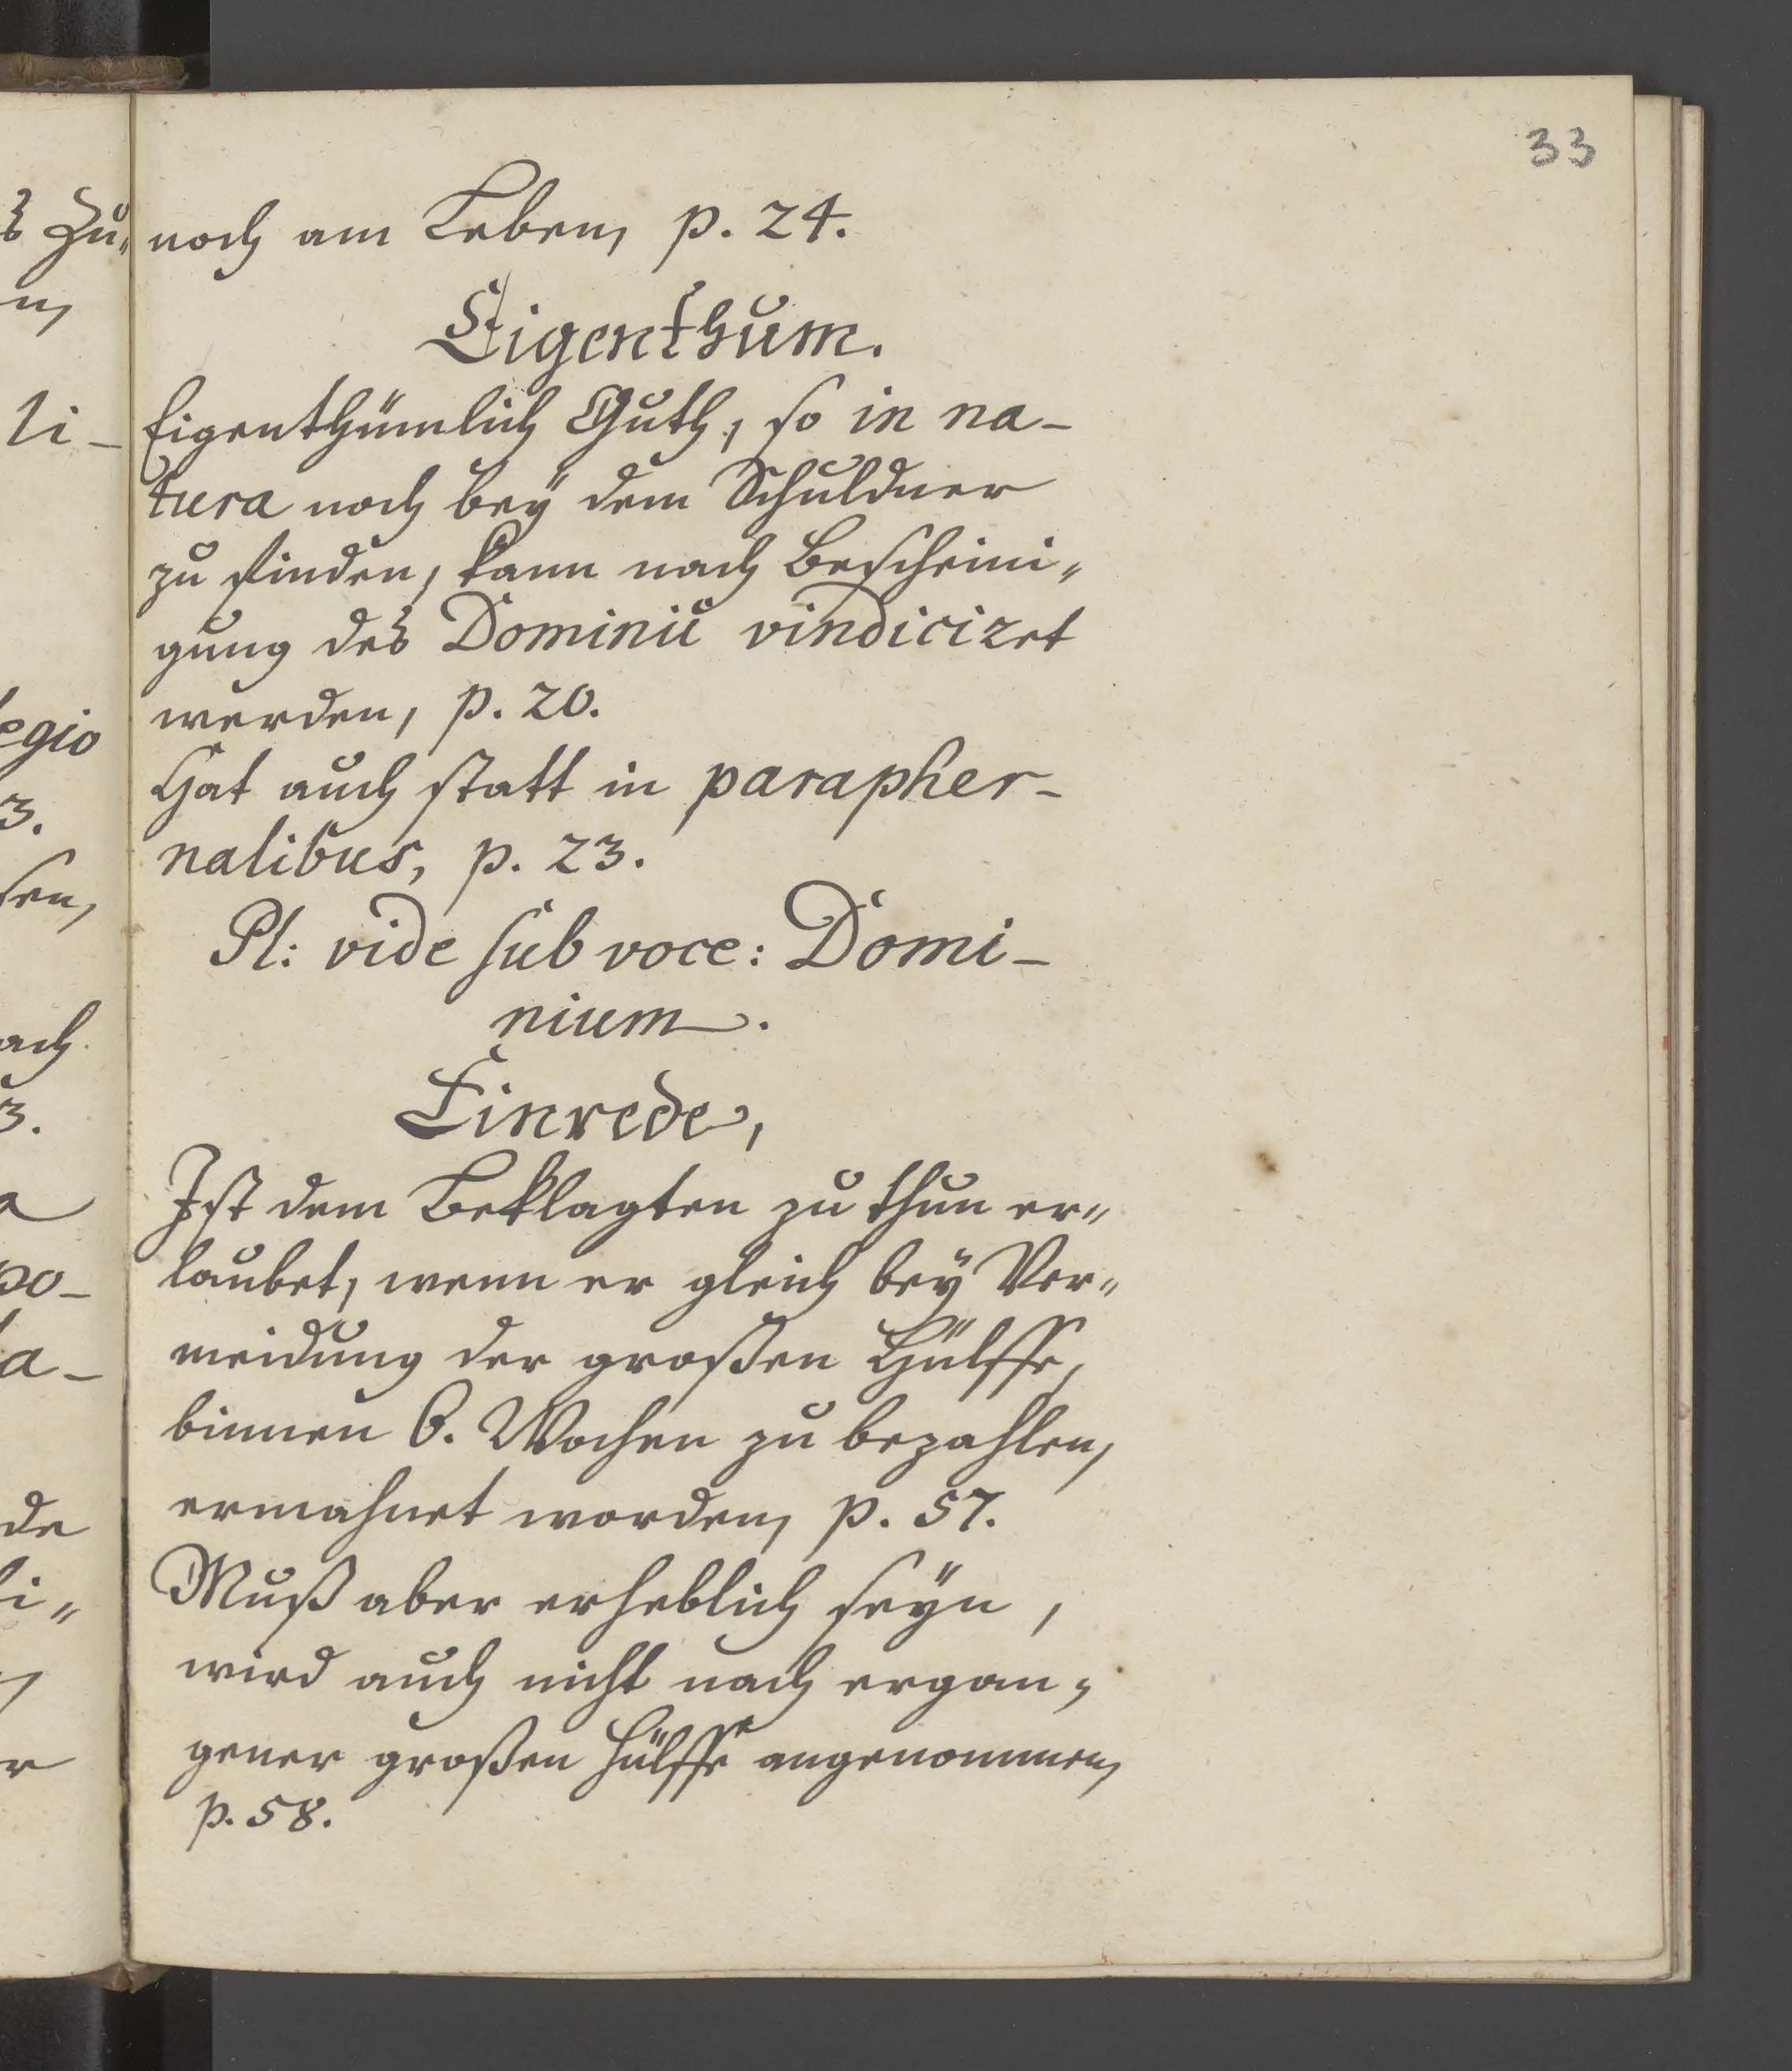 33
noch am Leben, p. 24.
Eigenthum.
Eigenthümlich Guth, so in na-
tura noch beÿ dem Schuldner
zu finden, kann nach Bescheini„
gung des Dominii vindiciret
werden, p. 20.
Hat auch statt in parapher-
nalibus, p. 23.
Pl: vide sub voce: Domi-
nium.
Einrede,
Ist dem Beklagten zu thun er„
laubet, wenn er gleich beÿ Ver„
meidung der großen Hülffe,
binnen 6. Wochen zu bezahlen,
ermahnet worden, p. 57.
Muß aber erheblich seÿn,
wird auch nicht nach ergan„
gener großen Hülffe angenommen,
p. 58.